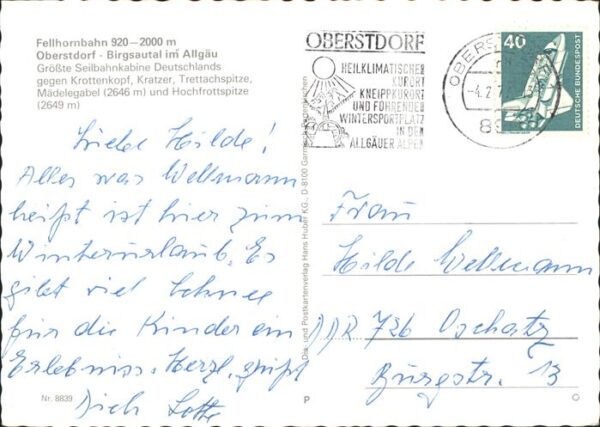 Fellhornbahn 920—2000 m
Oberstdorf - Birgsautal im Allgäu
Größte Seilbahnkabine Deutschlands
gegen Krottenkopf, Kratzer, Trettachspitze,
Mädelegabel (2646 m) und Hochfrottspitze
(2649 m)
Liebe Hilde!
Alles was Wellmann
heißt ist hier zum
Winterurlaub. Es
gibt viel Schnee
für die Kinder ein
Erlebnis. Herzl. grüßt
Dich Lotte
Nr. 8839
Dia- und Postkartenverlag Hans Huber KG., D-8100 Garmisch-Partenkirchen
OBERSTDORF
HEILKLIMATISCHER
KURORT
KNEIPPKURORT
UND FÜHRENDER
WINTERSPORTPLATZ
IN DEN
ALLGÄUER ALPEN
-4.2.7
89
40
DEUTSCHE BUNDESPOST
Frau
Hilde Wellmann
DDR 726 Oschatz
Burgstr. 13
P